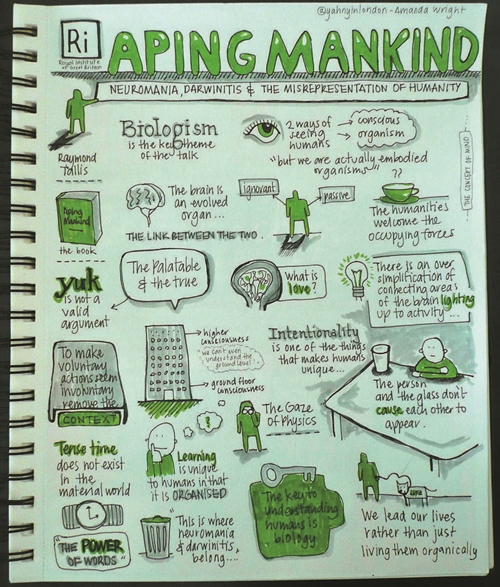 @yahnyinlondon - Amanda Wright
Ri
Royal Institute
of Great Britain
APING MANKIND
NEUROMANIA, DARWINITIS & THE MISREPRESENTATION OF HUMANITY
Raymond
Tallis
Biologism
is the key theme
of the talk
2 ways of
seeing
humans
conscious
organism
"but we are actually embodied
organisms" ??
THE CONCEPT OF MIND
Aping
Mankind
the book
The brain is
an evolved
organ...
THE LINK BETWEEN THE TWO.
ignorant
passive
The humanities
welcome the
occupying forces
yuk
is not a
valid
argument
The Palatable
& the true
What is
love?
There is an over
simplification of
connecting areas
of the brain lighting
up to activity...
To make
voluntary
actions seem
involuntary
remove the
CONTEXT
higher
consciousness
"we can't even
understand the
ground level"
ground floor
consciousness
Intentionality
is one of the things
that makes humans
unique...
The person
and the glass don't
cause each other to
appear.
Tense time
does not exist
in the
material world
?
Learning
is unique
to humans in that
it is ORGANISED
The Gaze
of Physics
"THE POWER
OF WORDS"
"This is where
neuromania
& darwinitis,
belong....
The key to
understanding
humans is
biology
We lead our lives
rather than just
living them organically